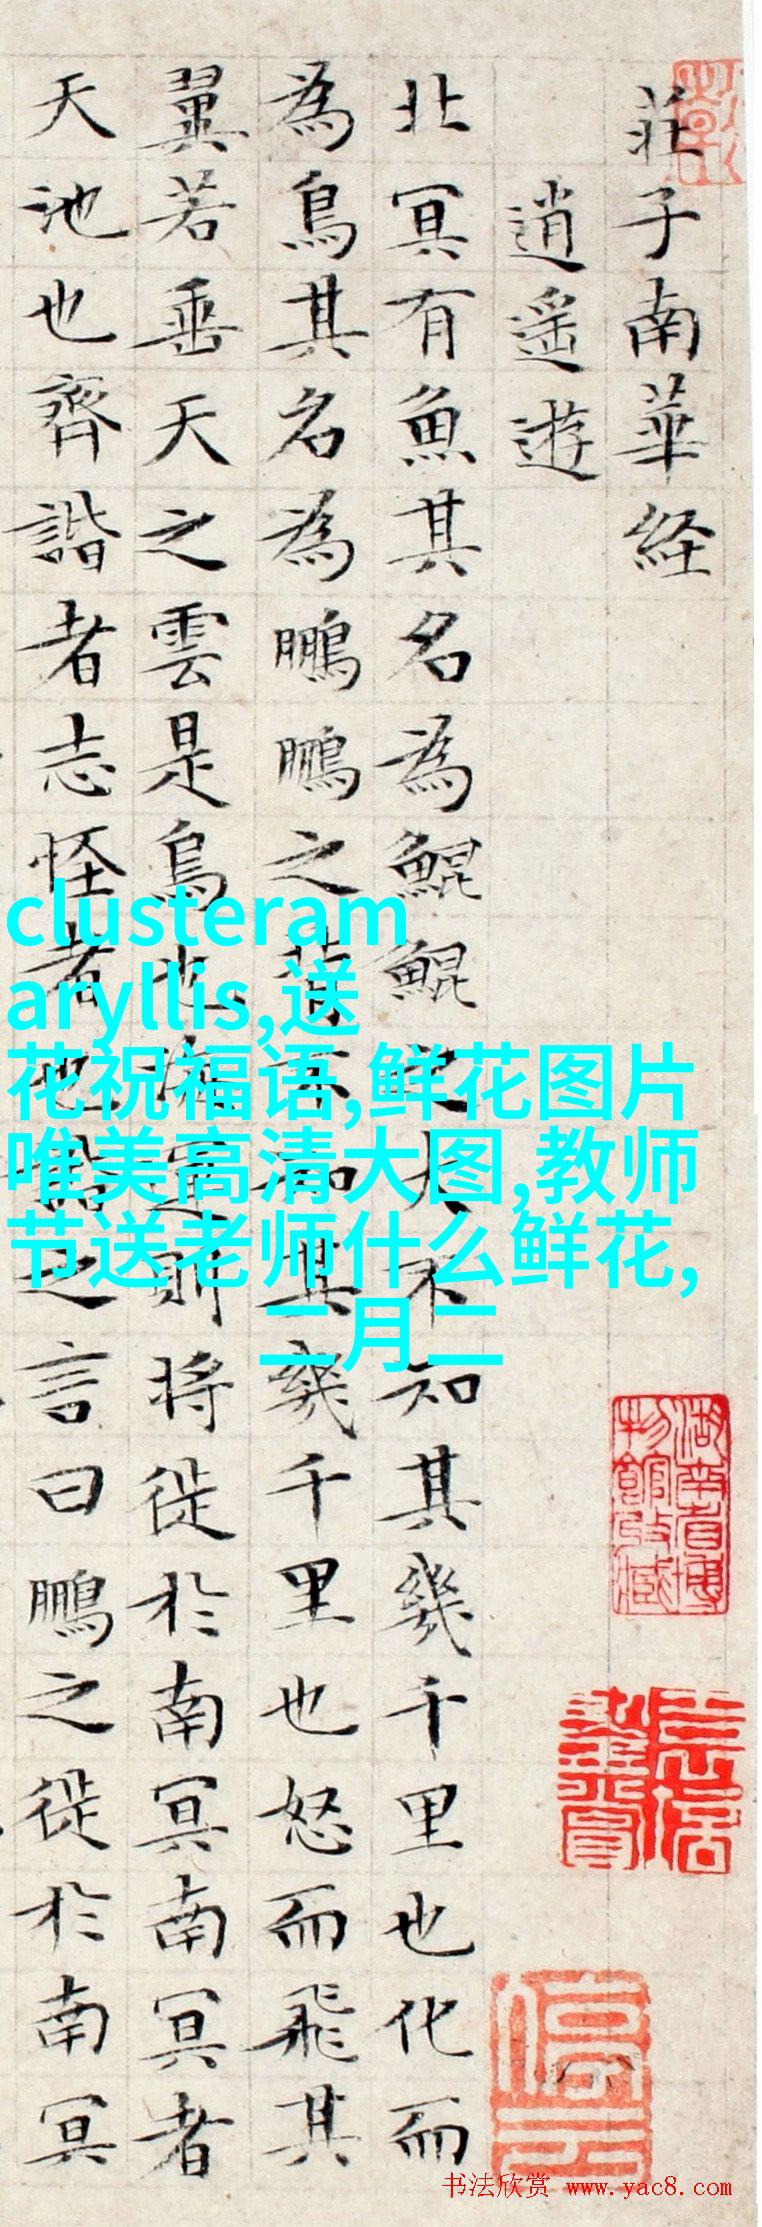 莊子南華経
逍遥遊
北冥有魚其名為鯤鯤之大不知其幾千里也化而
為鳥其名為鵬鵬之背不知其幾千里也怒而飛其
翼若垂天之雲是鳥也海運則将徙於南冥南冥者
天池也齊諧者志怪者也諧之言曰鵬之徙於南冥
clusteram
aryllis,送
花祝福语,鲜花图片
唯美高清大图,教师
节送老师什么鲜花,
二月二
湖南省博
物館收藏
书法欣赏 www.yac8.com